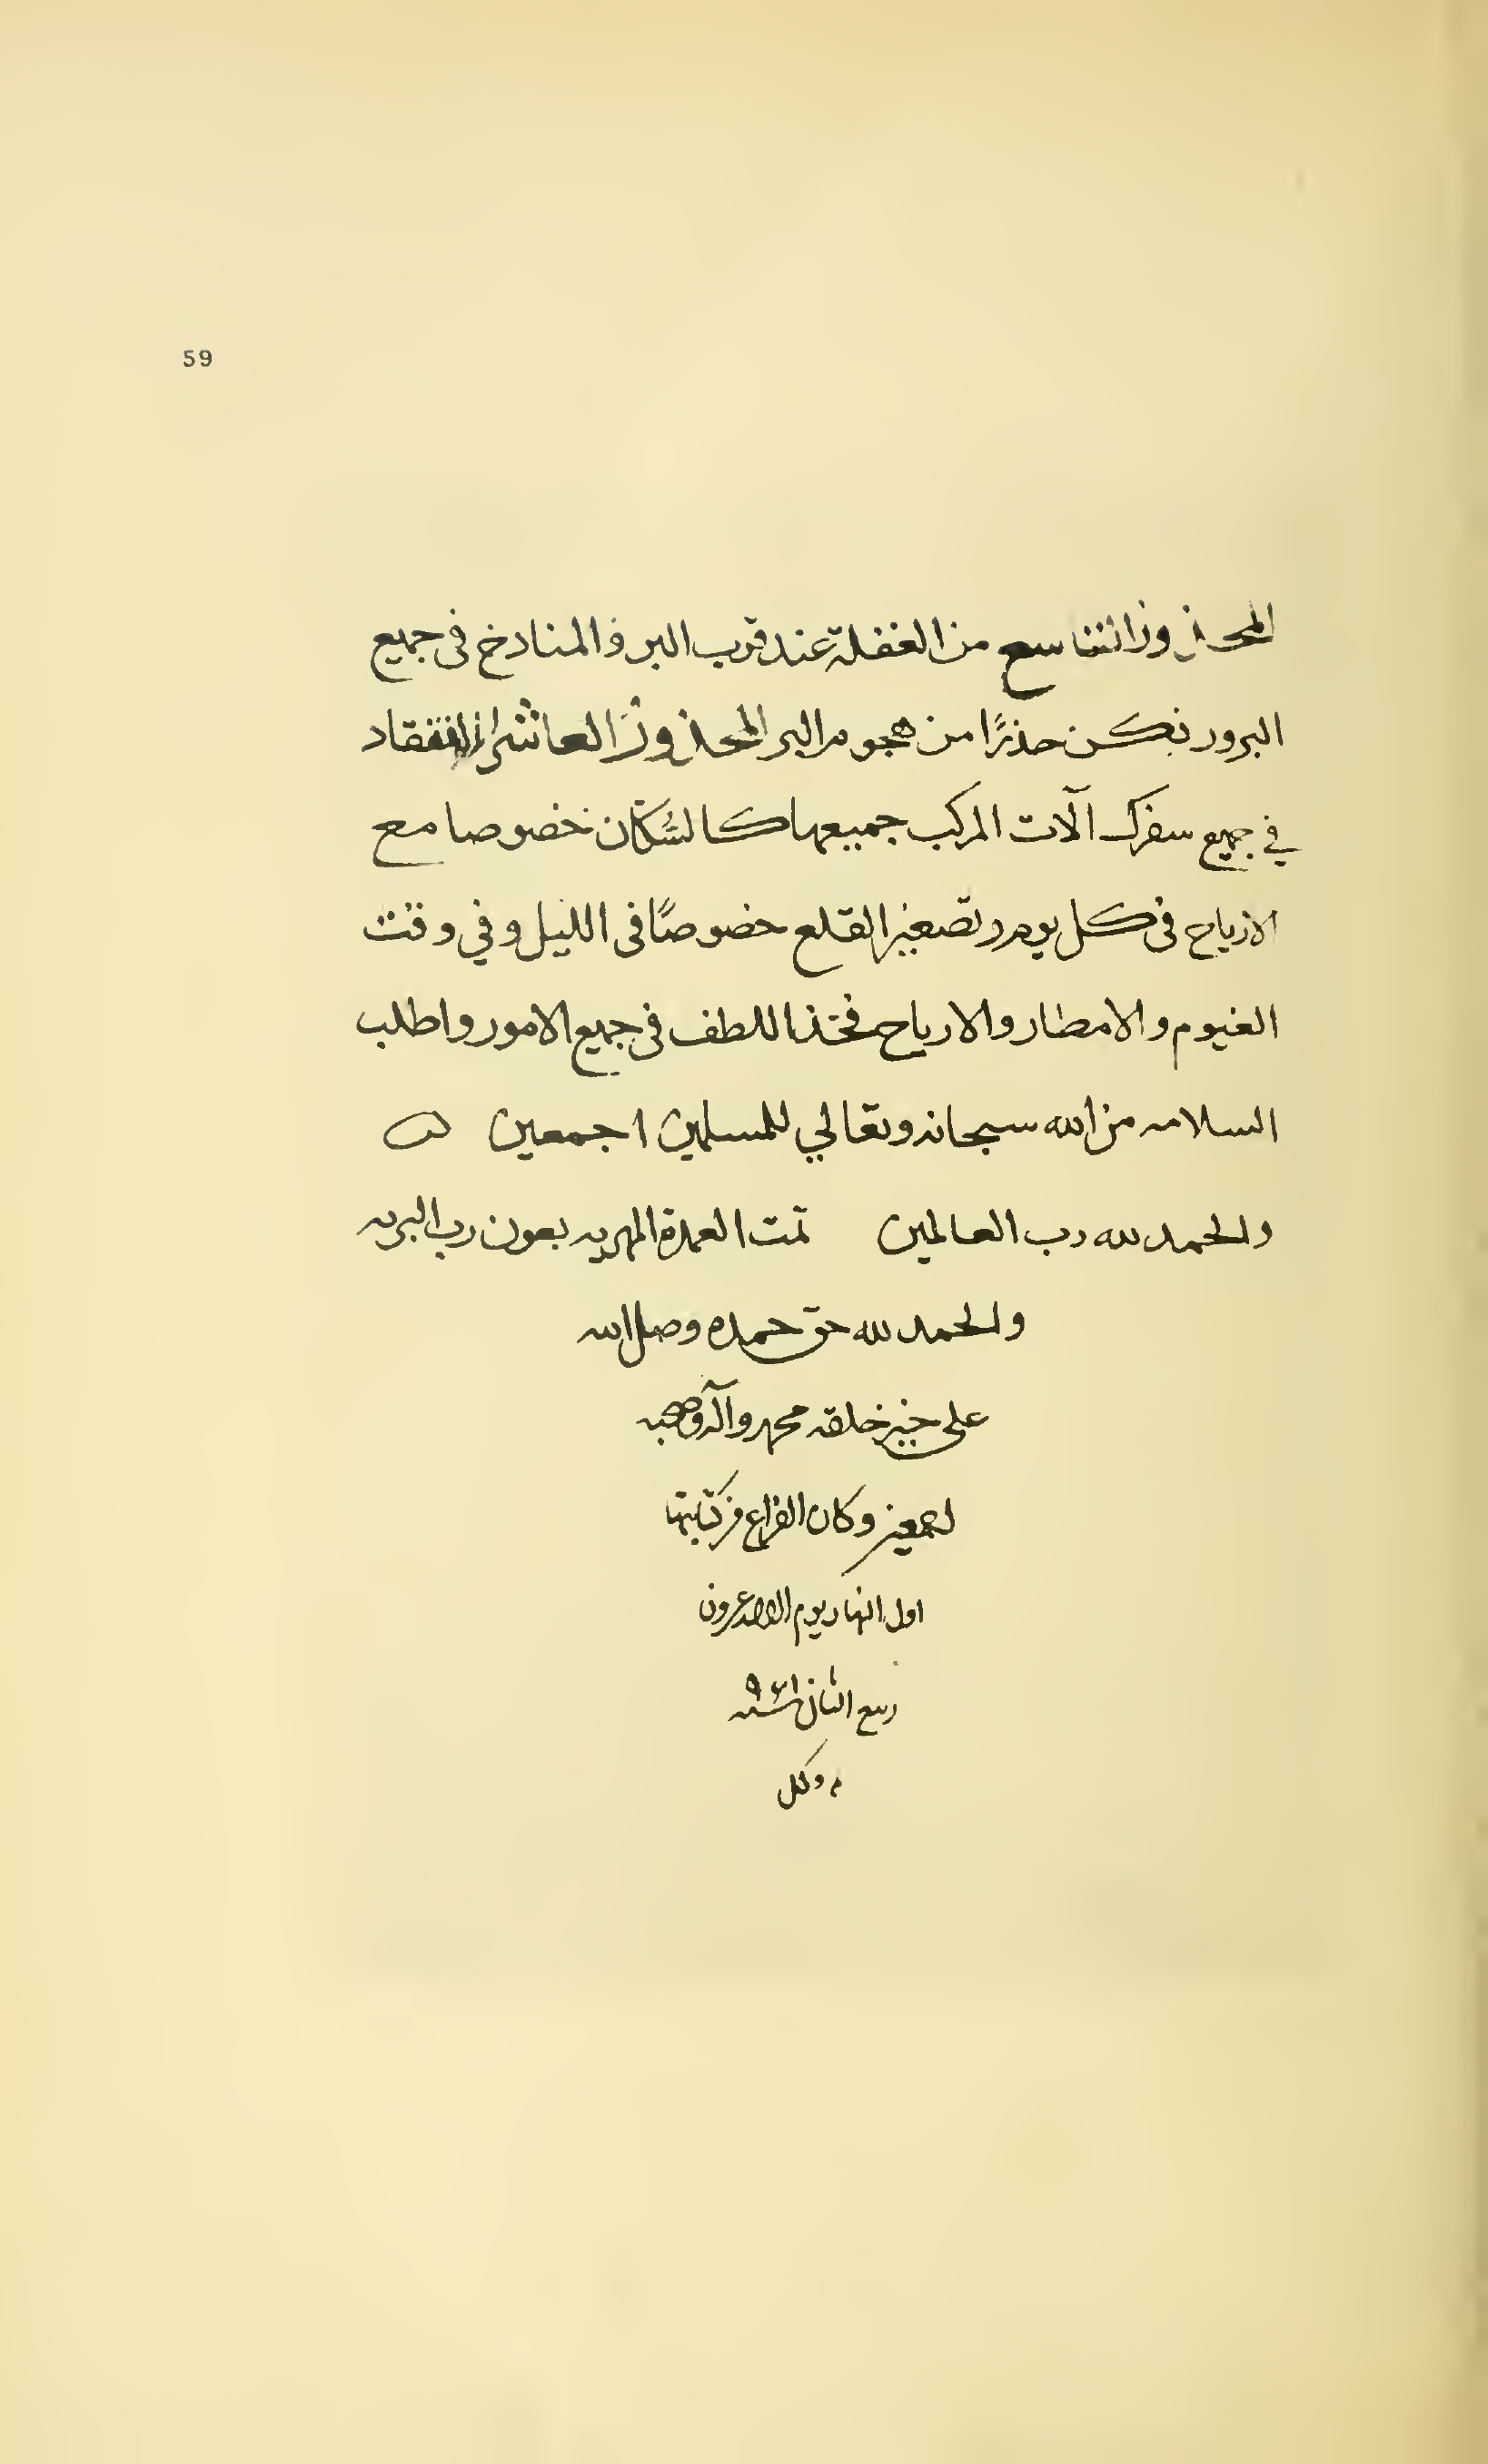 59
المحذور التاسع من الغفلة عند قرب البر والمنادخ فى جميع
البرور نكن حذرًا من هجوم البر المحذور العاشر التفقاد
في جميع سفرك آلات المركب جميعها كالسُّكّان خصوصا مع
الارياح فى كل يوم وتصغير القلع خصوصًا فى الليل وفي وقت
الغيوم والامطار والارياح فخذ اللطف فى جميع الامور واطلب
السلامه من الله سبحانه وتعالي للمسلمين اجمعين
والحمد لله رب العالمين تمت العمدة المهريه بعون رب البريه
والحمد لله حق حمده وصلى الله
على خير خلقه محمد وآله وصحبه
اجمعين وكان الفراغ من كتابتها
اول النهار يوم
ربيع الثاني سنه ٩٦١